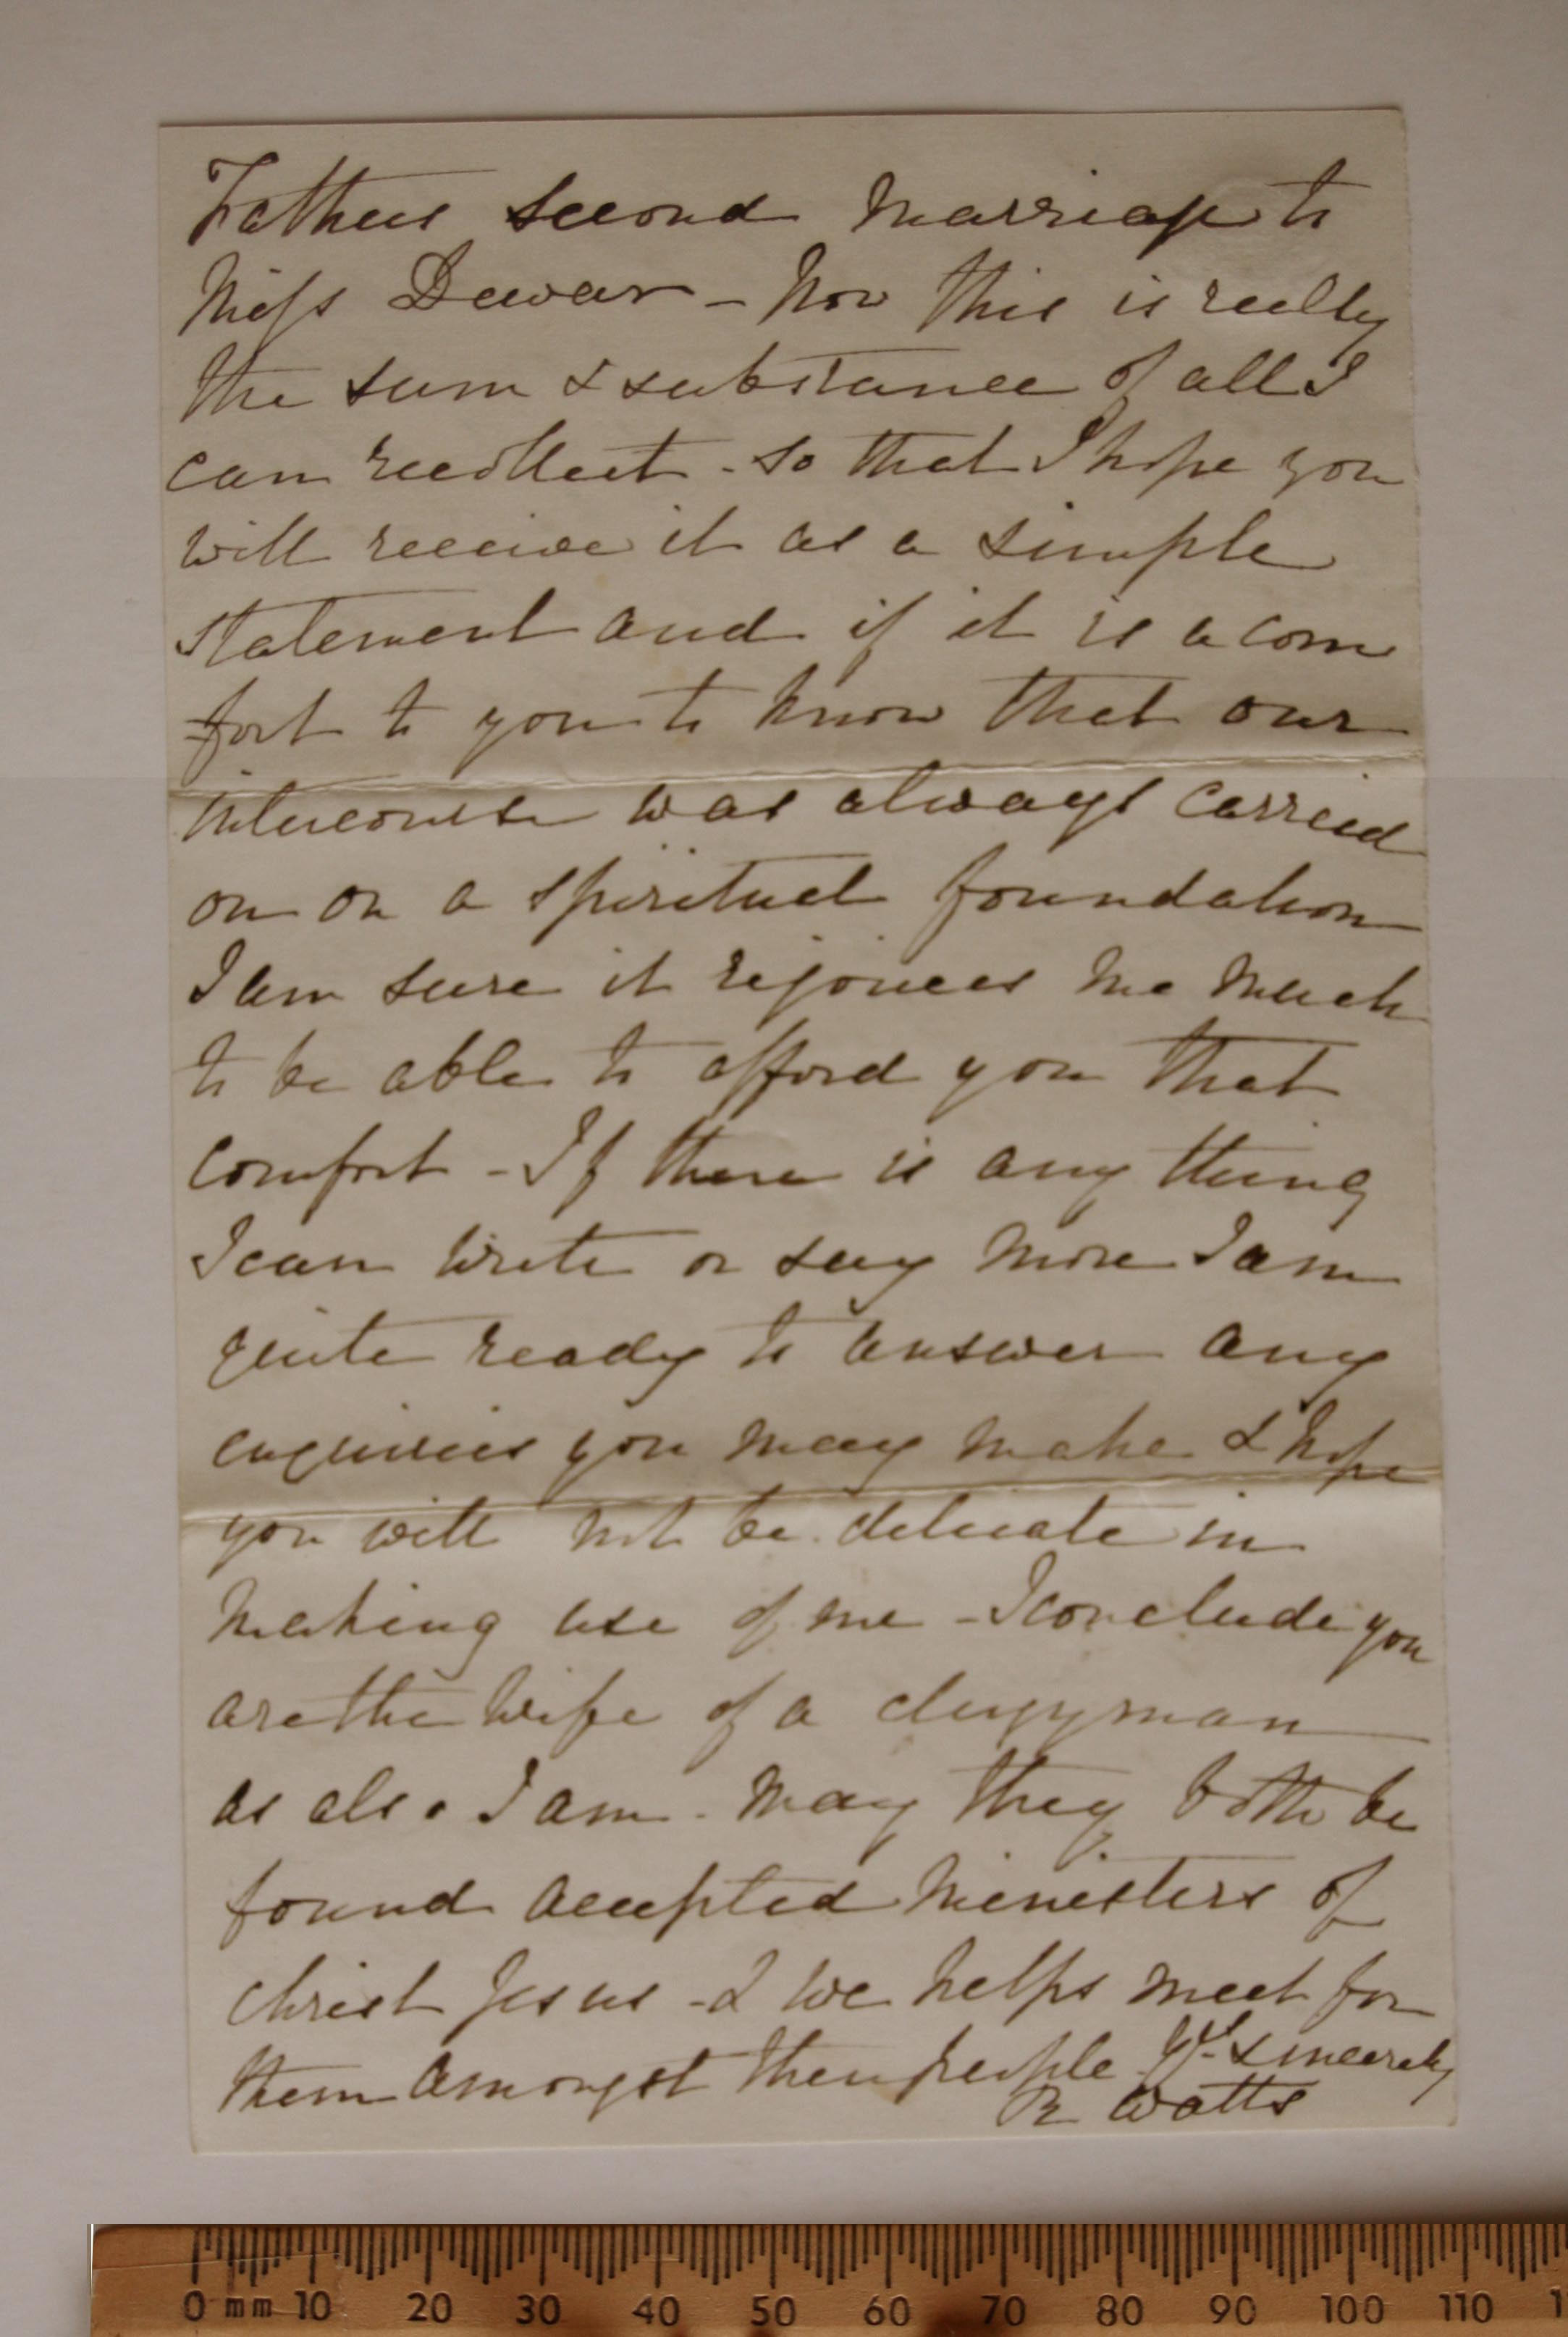 Fathers second marriage to
Miss Dewar - Now this is really
the sum & substance of all I
can recollect - so that I hope you
will receive it as a simple
statement and if it is a com
fort to you to know that our
intercourse was always carried
on on a spiritual foundation
I am sure it rejoices me much
to be able to afford you that
comfort - If there is any thing
I can write or say more I am
quite ready to answer any
enquiries you may make & hope
you will not be delicate in
making use of me - I conclude you
are the wife of a clergyman
as also I am - May they both be
found accepted ministers of
Christ Jesus - & we helps meet for
them amongst their people Yrs sincerely
R Watts
0 mm 10 20 30 40 50 60 70 80 90 100 110 1